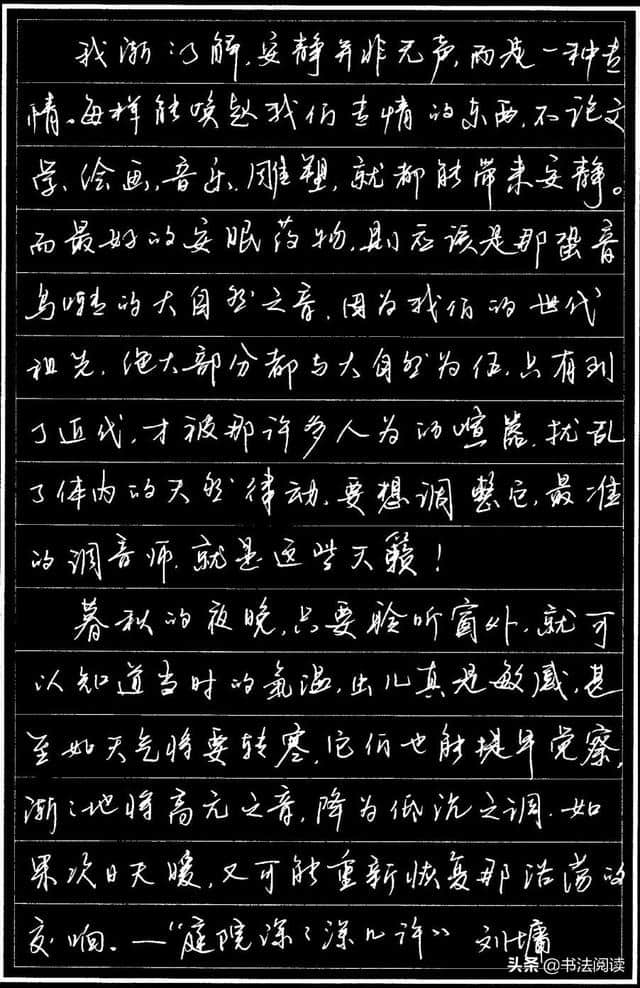 我渐〻了解,安静并非无声,而是一种专
情。每样能唤起我们专情的东西,不论文
学、绘画,音乐、雕塑,就都能带来安静。
而最好的安眠药物,则应该是那蛩音
鸟啭的大自然之音,因为我们的世代
祖先,绝大部分都与大自然为伍,只有到
了近代,才被那许多人为的喧嚣,扰乱
了体内的天然律动,要想调整它,最准
的调音师,就是这些天籁!
暮秋的夜晚,只要聆听窗外,就可
以知道当时的氣温,虫儿真是敏感,甚
至如天气将要转寒,它们也能提早觉察,
渐〻地将高亢之音,降为低沉之调.如
果次日天暖,又可能重新恢复那浩荡的
交响。—“庭院深〻深几许” 刘墉
头条@书法阅读